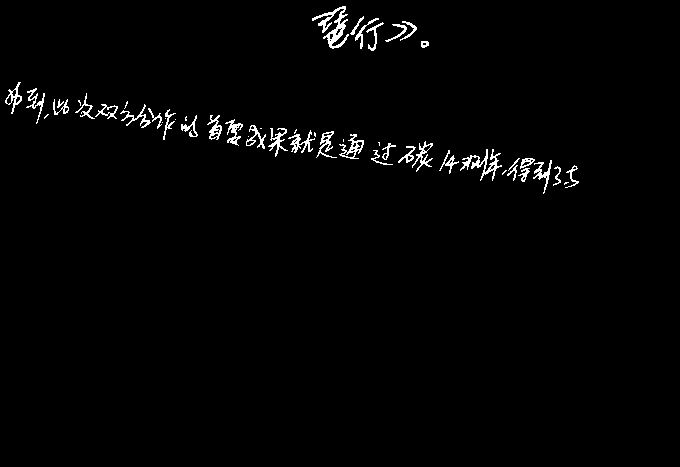 琶行》。
到,此次双方合作的首要成果就是通过碳14测年,得到了5